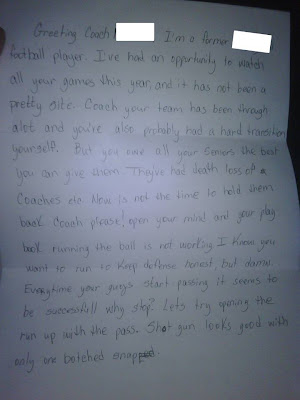 Greeting Coach I'm a former
football player. I've had an opportunity to watch
all your games this year, and it has not been a
pretty site. Coach your team has been through
alot and you're also probably had a hard transition
yourself. But you owe all your seniors the best
you can give them. They've had death loss of a
Coaches etc. Now is not the time to hold them
back. Coach please! open your mind and your play
book running the ball is not working. I know you
want to run to keep defense honest, but damn.
Everytime your guys start passing it seems to
be successfull why stop? Lets try opening the
run up with the pass. Shot gun looks good with
only one botched snap